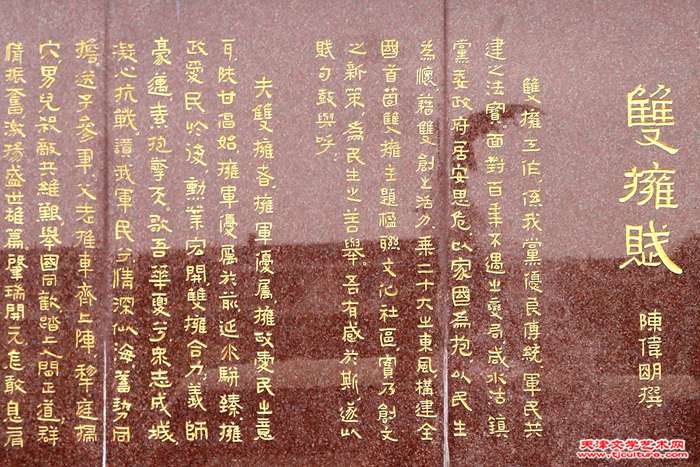 雙擁賦
陳偉明撰
雙擁工作,係我黨優良傳統,軍民共
建之法寶。面對百年不遇之變局,咸水沽鎮
黨委政府居安思危,以家國為抱,以民生
為懷,藉雙創之活力,乘二十大之東風,構建全
國首茴雙擁主題楹聯文化社區,實乃創文
之新策,為民生之善舉。吾有感於斯,遂以
賦句鼓與呼。
夫雙擁者,擁軍優屬,擁政愛民之意
耳。陝甘倡始,擁軍優屬於前,延水駢臻,擁
政愛民於後。勳業宏開,雙擁合力,義師
豪邁,素抱摯友。歌吾華夏兮,衆志成城,
凝心抗戰,讚我軍民兮,情深似海,蓄勢同
擔。送子參軍,父老推車齊上陣,犂庭掃
穴,男兒殺敵共維艱。舉國同歡,踏上人間正道,群
情振奮,激揚盛世雄篇。肇瑞開元,怎敢息肩
天津文学艺术网
www.tjculture.com